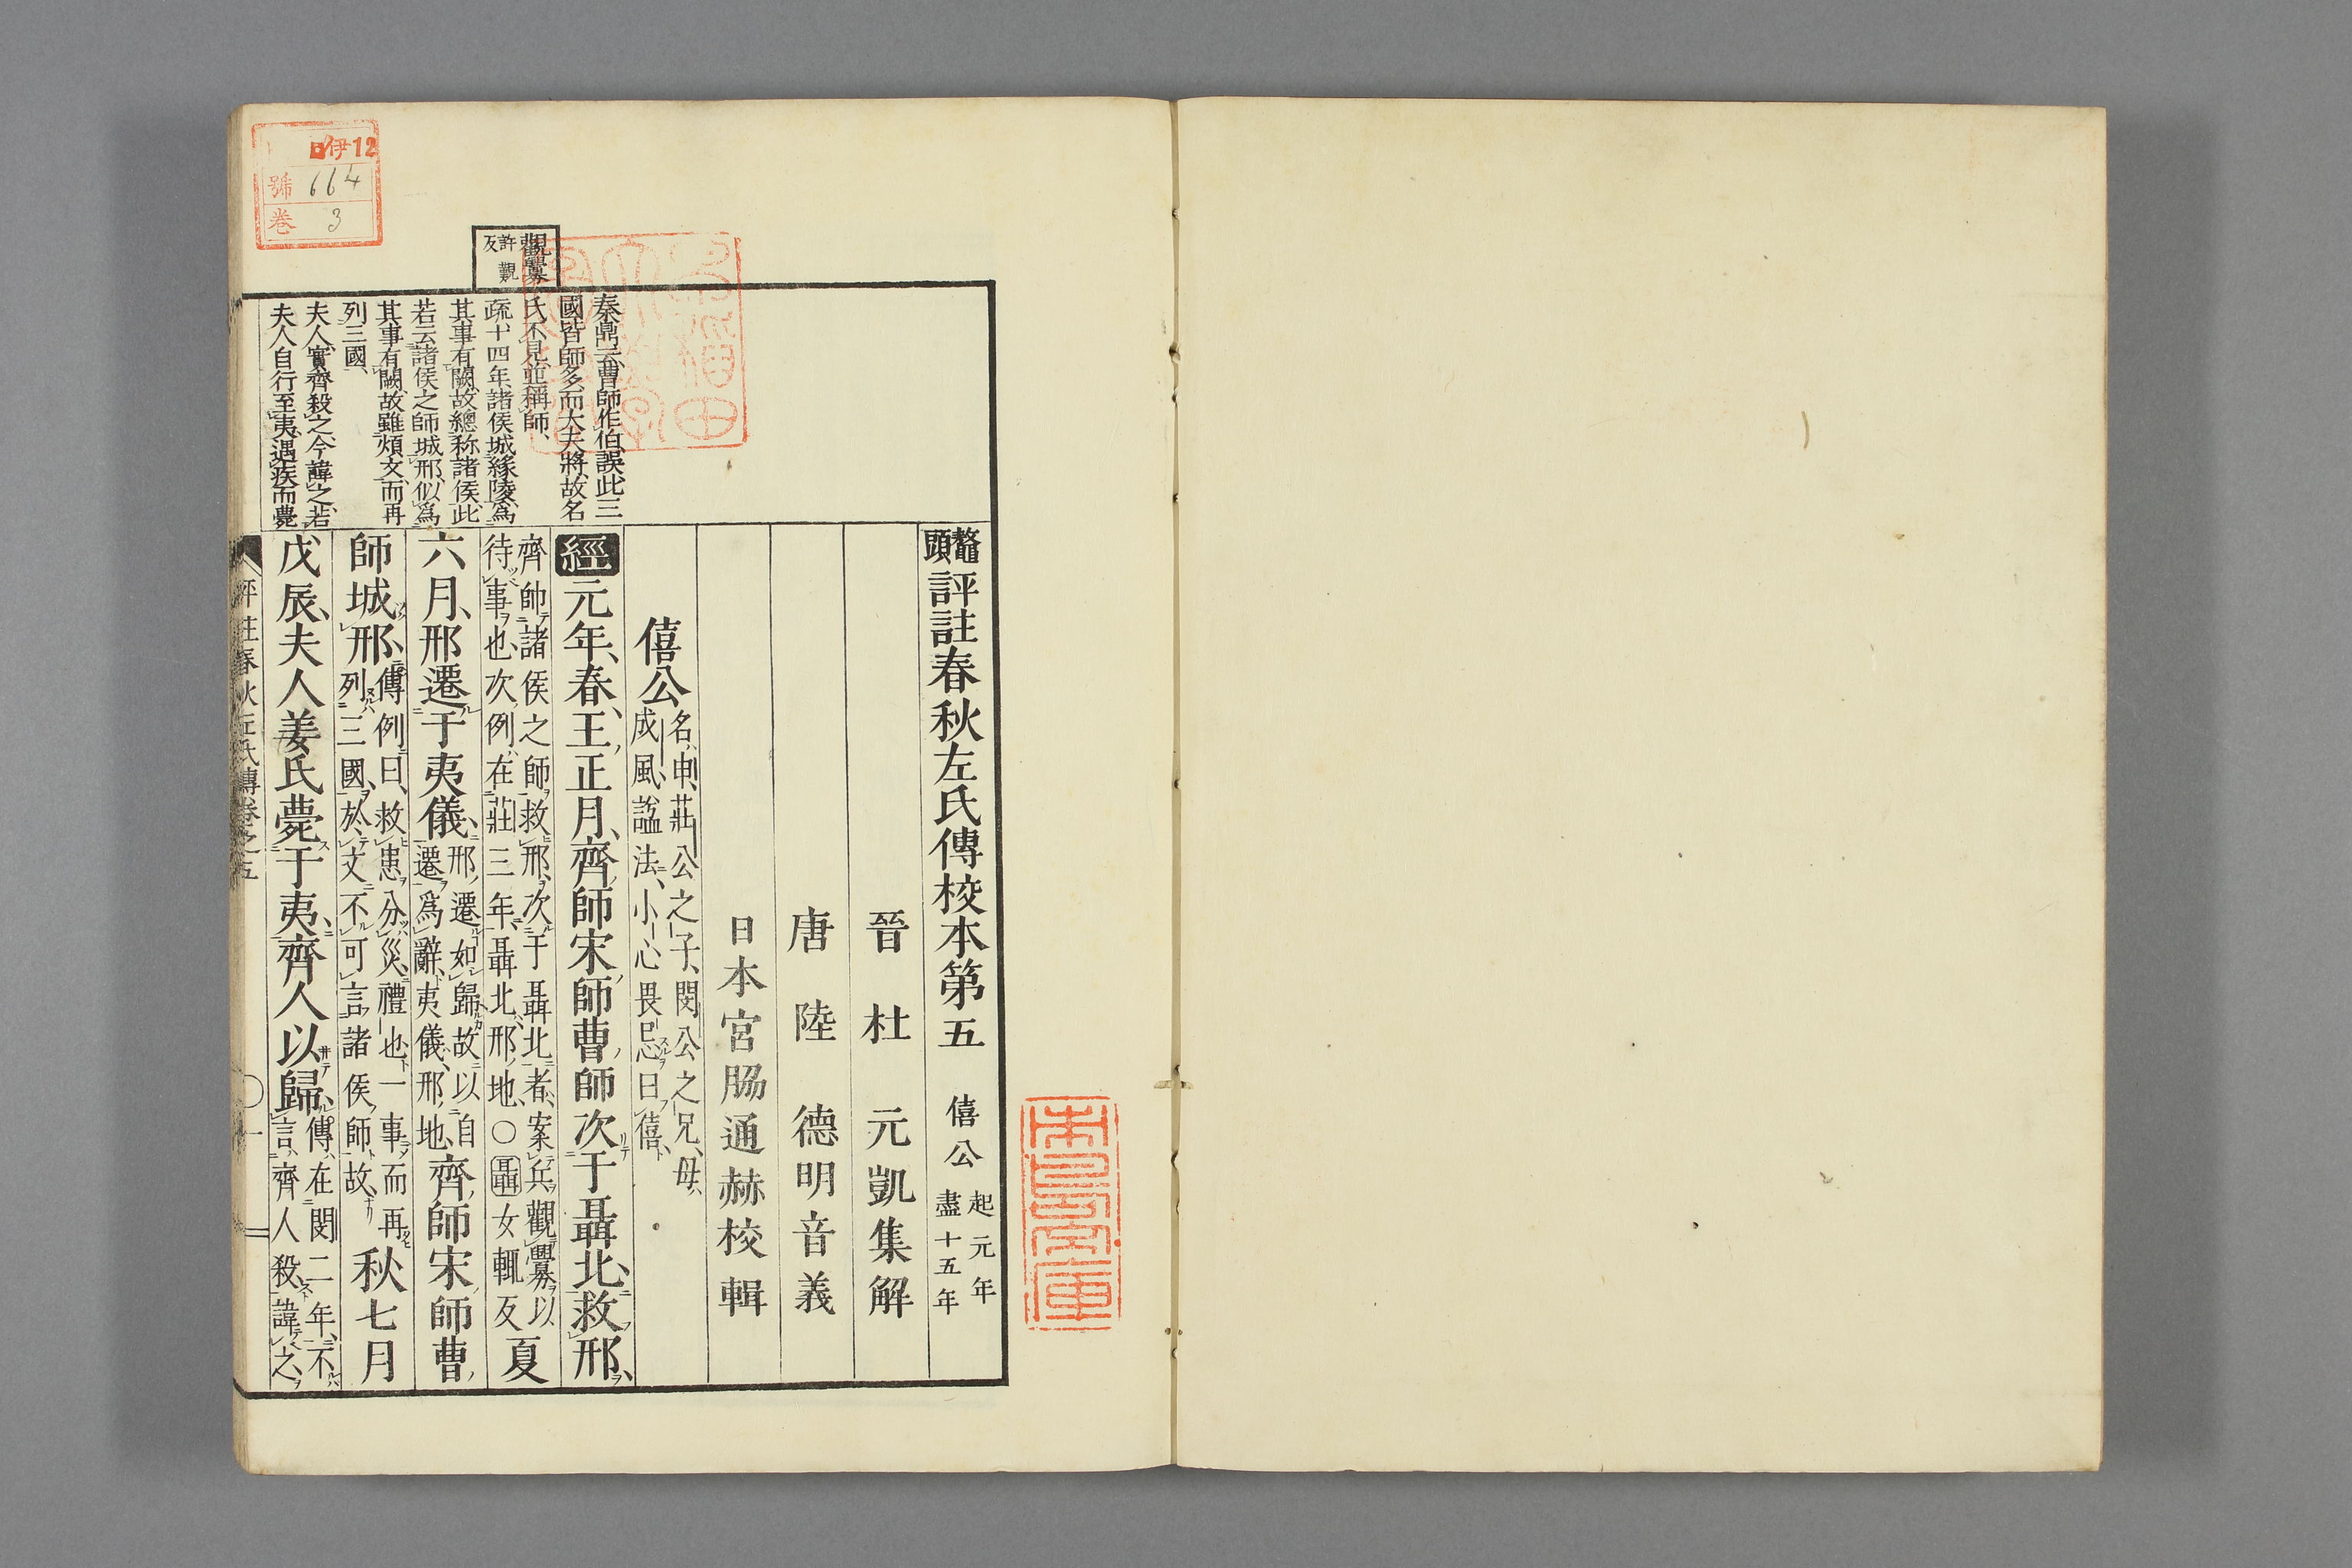 鼇頭評註春秋左氏傳校本第五 僖公 起元年盡十五年
晉 杜 元凱集解
唐 陸 德明音義
日本宮脇通赫校輯
僖公 名申莊公之子閔公之兄母
成風諡法小心畏忌曰僖
經元年春王正月齊師宋師曹師次于聶北救邢
齊帥諸侯之師救邢次于聶北者案兵觀釁以
待事也次例在莊三年聶北邢地〇聶女輒反 夏
六月邢遷于夷儀 邢遷如歸故以自
遷爲辭夷儀邢地 齊師宋師曹
師城邢 傳例曰救患分災禮也一事而再
列三國於文不可言諸侯師故 秋七月
戊辰夫人姜氏薨于夷齊人以歸 傳在閔二年不
言齊人殺諱之
秦鼎云曹師作伯誤此三
國皆師多而大夫將故名
氏不見並稱師
疏十四年諸侯城緣陵爲
其事有闕故總称諸侯此
若云諸侯之師城邢似爲
其事有闕故雖煩文而再
列三國
夫人實齊殺之今諱之若
夫人自行至夷遇疾而薨
觀釁
許觀
反
評註春秋左氏傳卷之五
〇一
伊12
號 664
卷 3